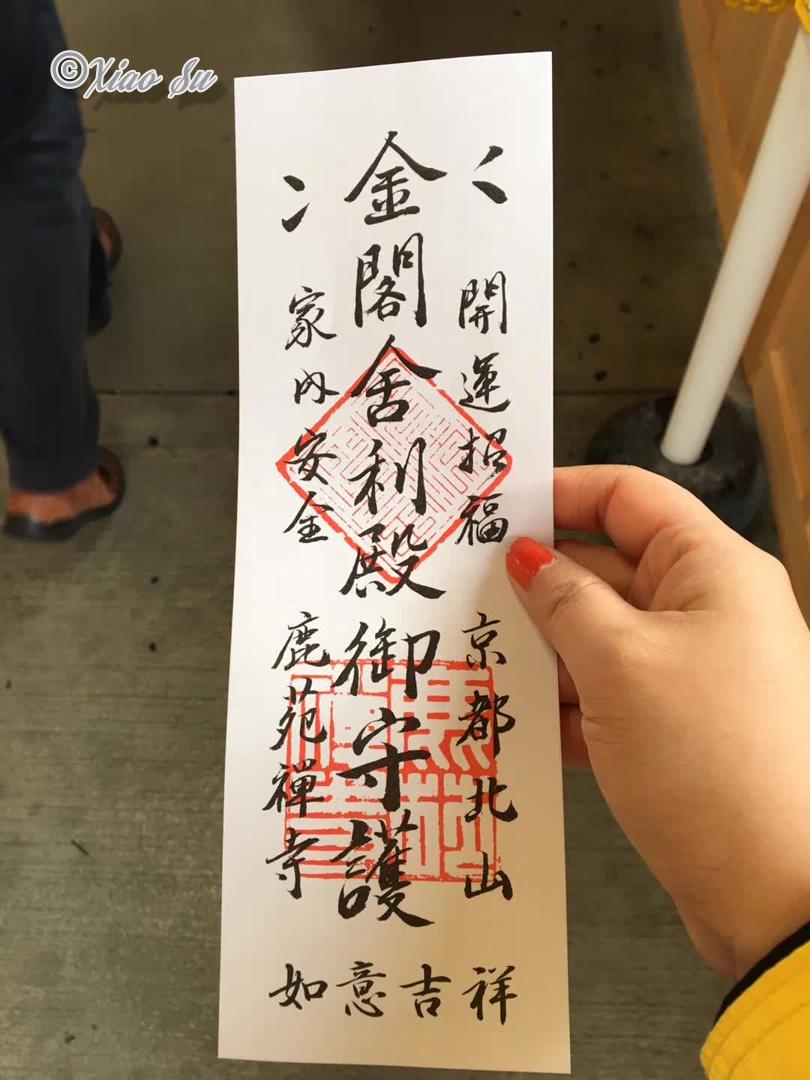 ©Xiao Su
く
開運招福
京都北山
金閣舎利殿御守護
家内安全
鹿苑禅寺
如意吉祥